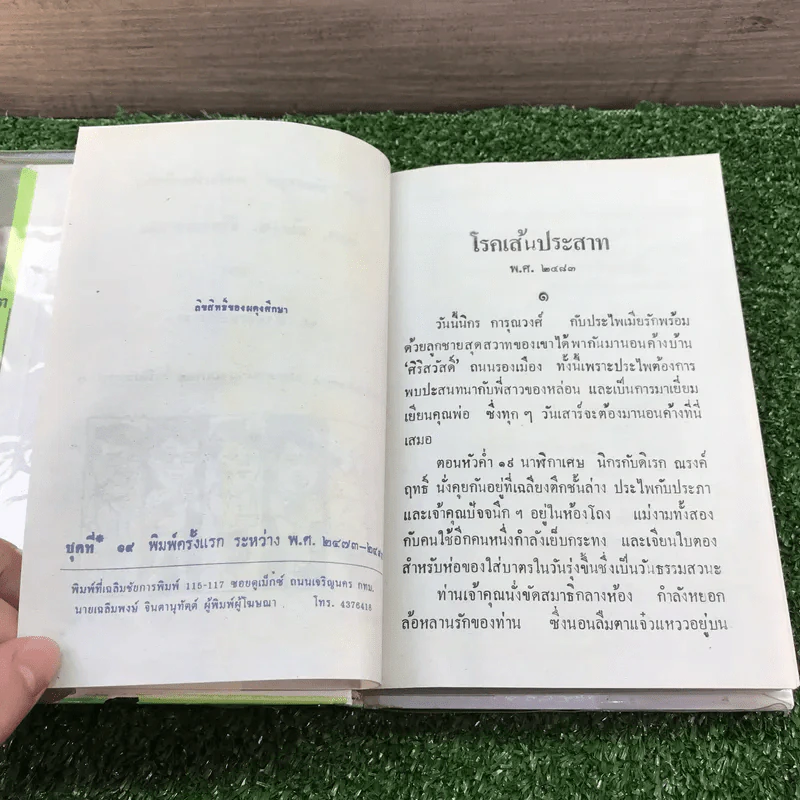 ลิขสิทธิ์ของผดุงศึกษา
ชุดที่ ๑๙ พิมพ์ครั้งแรก ระหว่าง พ.ศ. ๒๔๗๓-
พิมพ์ที่เฉลิมชัยการพิมพ์ 115-117 ซอยคูเม็กซ์ ถนนเจริญนคร กทม.
นายเฉลิมพงษ์ จินดานุทัตต์ ผู้พิมพ์ผู้โฆษณา โทร. 4376418
โรคเส้นประสาท
พ.ศ. ๒๔๘๓
๑
วันนี้นิกร การุณวงศ์ กับประไพเมียรักพร้อม
ด้วยลูกชายสุดสวาทของเขาได้พากันมานอนค้างบ้าน
'ศิริสวัสดิ์' ถนนรองเมือง ทั้งนี้เพราะประไพต้องการ
พบปะสนทนากับพี่สาวของหล่อน และเป็นการมาเยี่ยม
เยียนคุณพ่อ ซึ่งทุก ๆ วันเสาร์จะต้องมานอนค้างที่นี่
เสมอ
ตอนหัวค่ำ ๑๙ นาฬิกาเศษ นิกรกับดิเรก ณรงค์
ฤทธิ์ นั่งคุยกันอยู่ที่เฉลียงตึกชั้นล่าง ประไพกับประภา
และเจ้าคุณปัจจนึก ฯ อยู่ในห้องโถง แม่งามทั้งสอง
กับคนใช้อีกคนหนึ่งกำลังเย็บกระทง และเจียนใบตอง
สำหรับห่อของใส่บาตรในวันรุ่งขึ้นซึ่งเป็นวันธรรมสวนะ
ท่านเจ้าคุณนั่งขัดสมาธิกลางห้อง กำลังหยอก
ล้อหลานรักของท่าน ซึ่งนอนลืมตาแจ๋วแหววอยู่บน